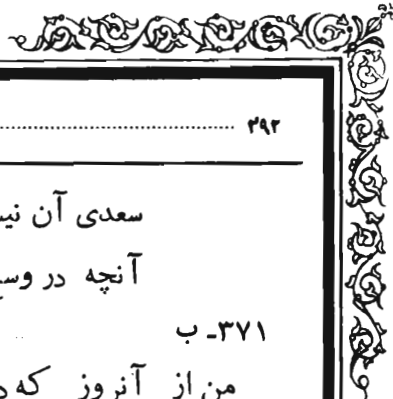 ۳۹۲ ........................................
سعدی آن
آنچه در
۳۷۱ـ ب
من از آنروز که